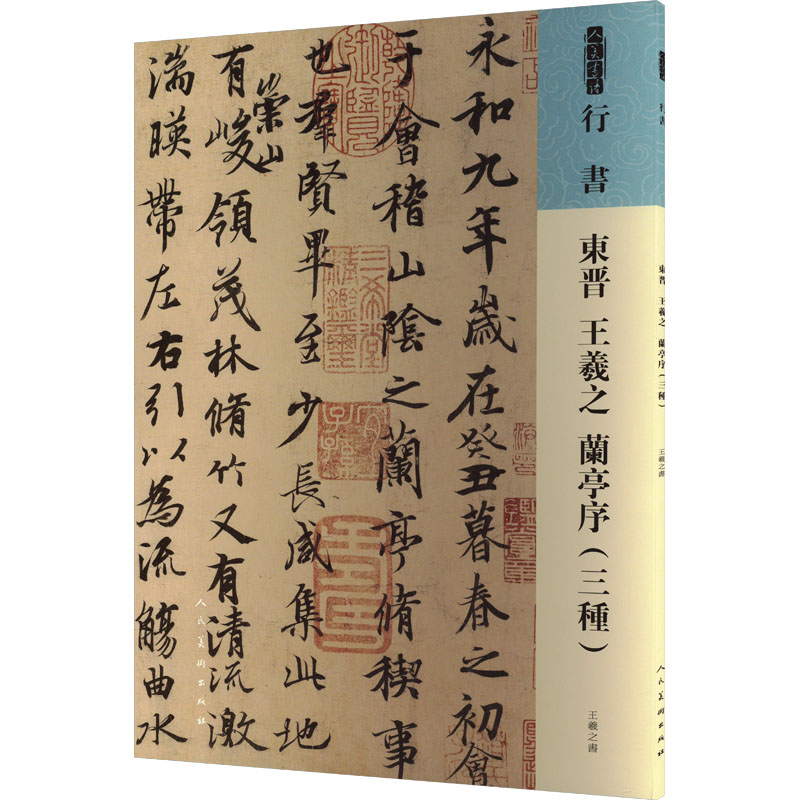 永和九年歲在癸丑暮春之初會
于會稽山陰之蘭亭脩稧事
也羣賢畢至少長咸集此地
有崇山峻領茂林脩竹又有清流激
湍暎帶左右引以為流觴曲水
人民美術出版社
人美書譜
行書
東晋 王羲之 蘭亭序（三種）
王羲之書
行書
東晋 王羲之 蘭亭序（三種）
王羲之書
人民美術出版社